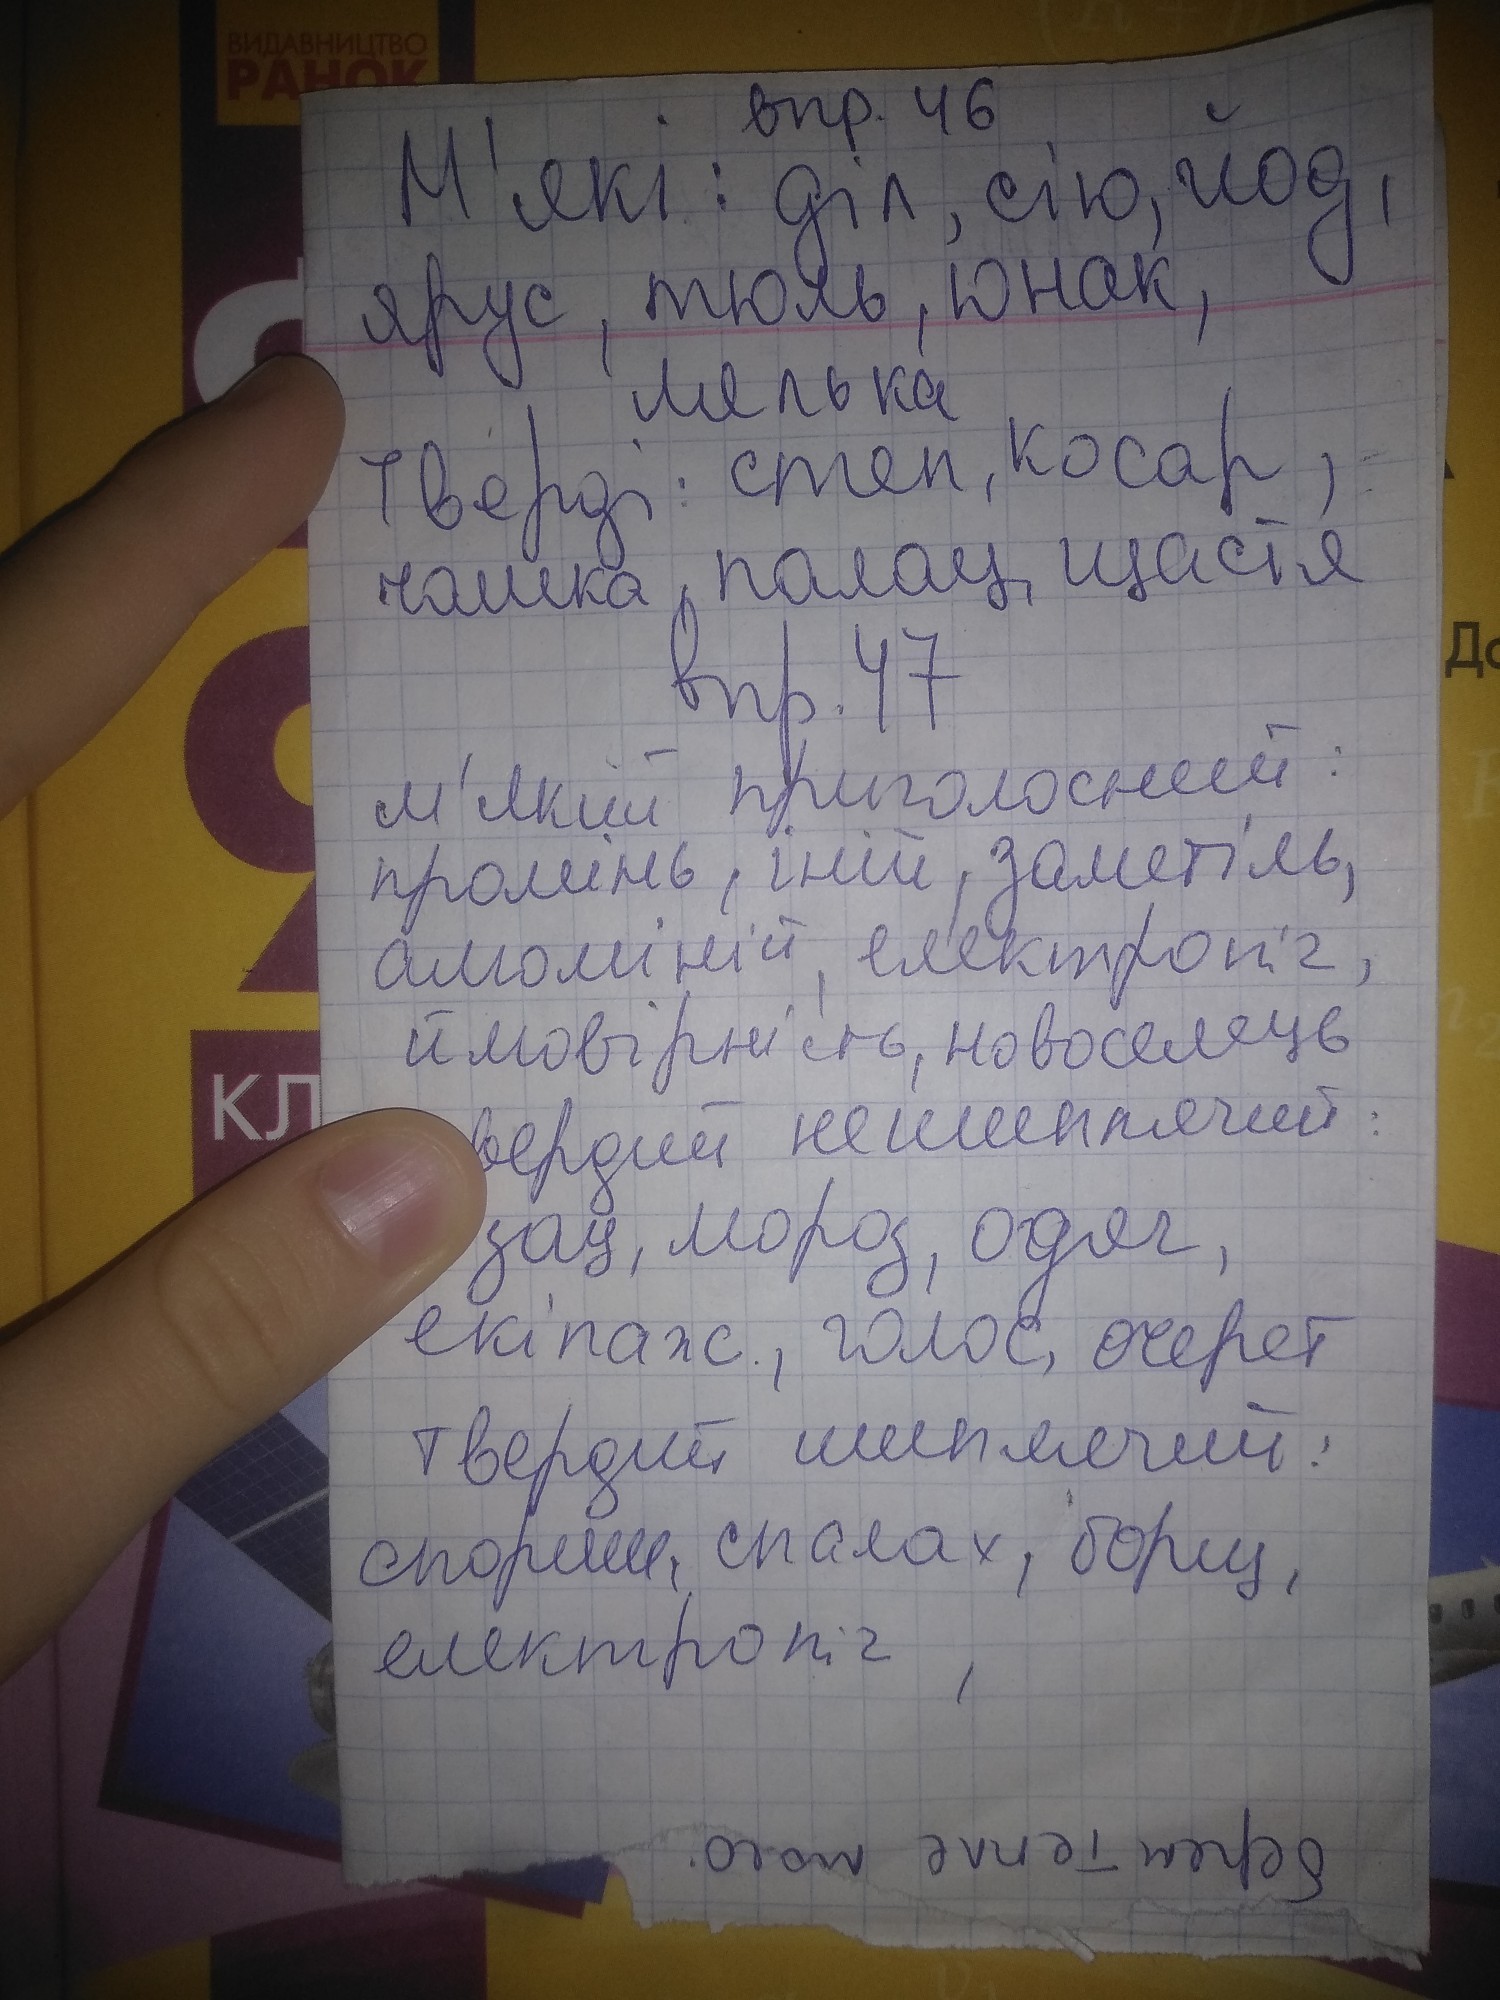 ВИДАВНИЦТВО
РАНОК
впр. 46
М'які: діл, сію, йод,
ярус, тюль, юнак,
лялька
Тверді: степ, косар,
чашка, палац, щастя
впр. 47
м'який приголосний:
промінь, іній, заметіль,
алюміній, електропіч,
ймовірність, новоселець
вердий нешиплячий:
зац, мороз, одяг,
екіпаж, голос, очерет
твердий шиплячий:
спориш, спалах, борщ,
електропіч,
берет тепле того.
КЛ
До